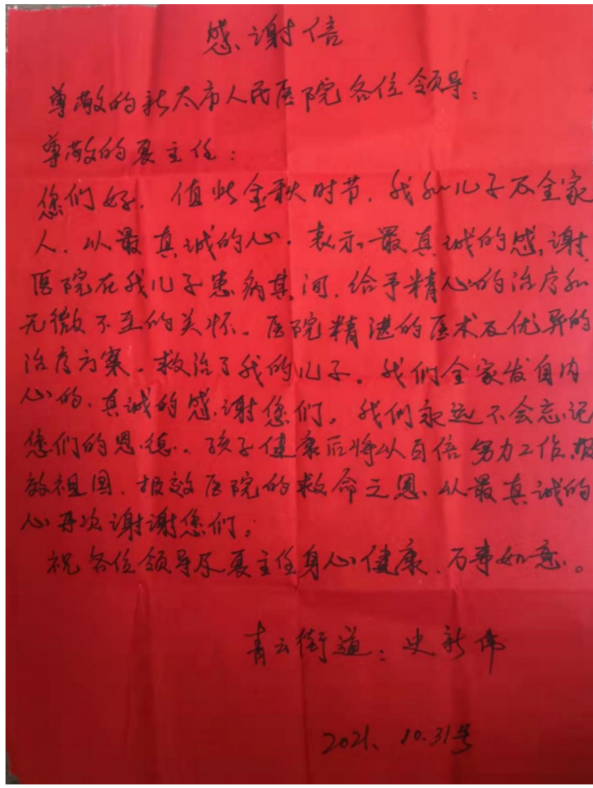 感谢信
尊敬的新太市人民医院各位领导：
尊敬的夏主任：
您们好．值此金秋时节．我和儿子及全家
人．以最真诚的心．表示最真诚的感谢
医院在我儿子患病其间．给予精心的治疗和
无微不至的关怀．医院精湛的医术及优异的
治疗方案．救治了我的儿子．我们全家发自内
心的．真诚的感谢您们．我们永远不会忘记
您们的恩德．孩子健康后将以百倍努力工作．报
效祖国．报效医院的救命之恩．以最真诚的
心再次谢谢您们。
祝各位领导及夏主任身心健康．万事如意。
青云街道：史新伟
2021、10.31号